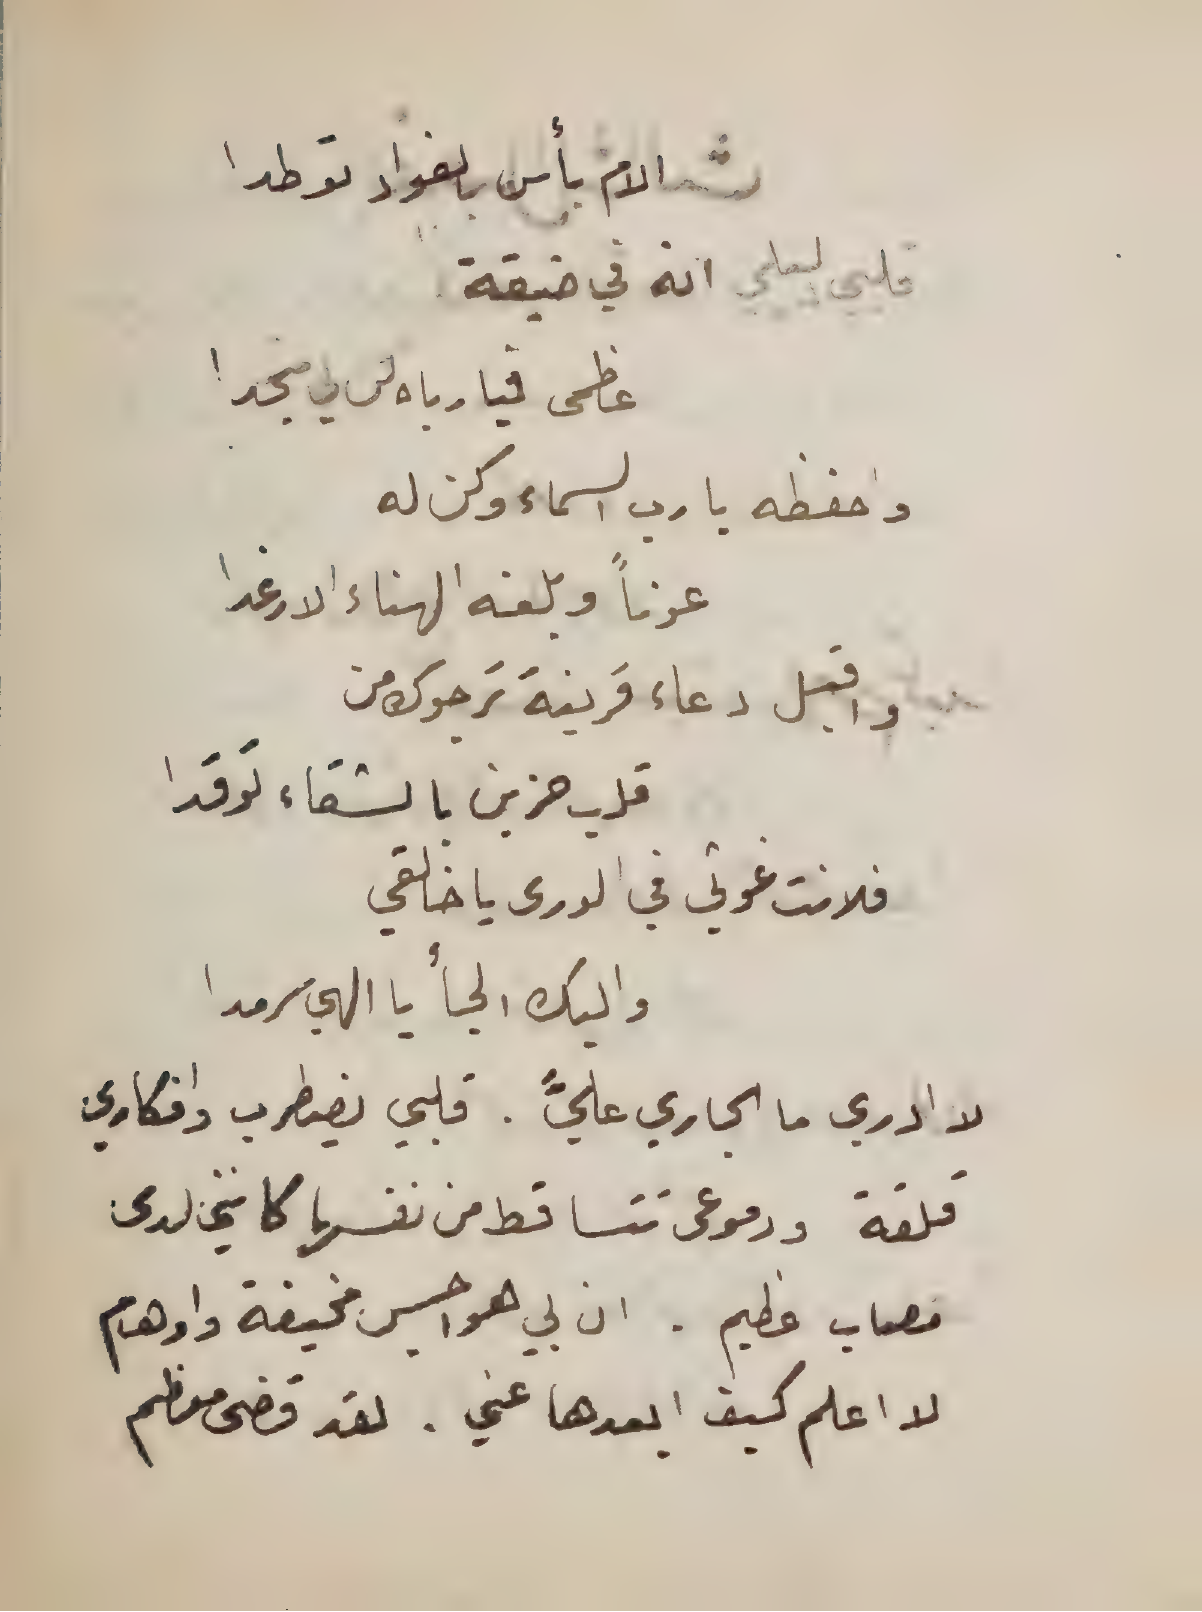 الام بأس بالفواد توطدا
قلبي لبعلي انه في ضيقة
عظمى فيا رباه كن لي منجدا
واحفظه يا رب السماء وكن له
عوناً وبلغه الهناء الارغدا
واقبل دعاء قرينة ترجوك من
قلب حزين بالشقاء توقدا
فلانت غوثي في الورى يا خالقي
واليك الجأ يا الهي سرمدا
لا ادري ما الجاري عليَّ . قلبي يضطرب وافكاري
قلقة ودموعي تتساقط من نفسها كانني لدى
مصاب عظيم . ان لي هواجس مخيفة واوهام
لا اعلم كيف ابعدها عني . لقد قضى معظم